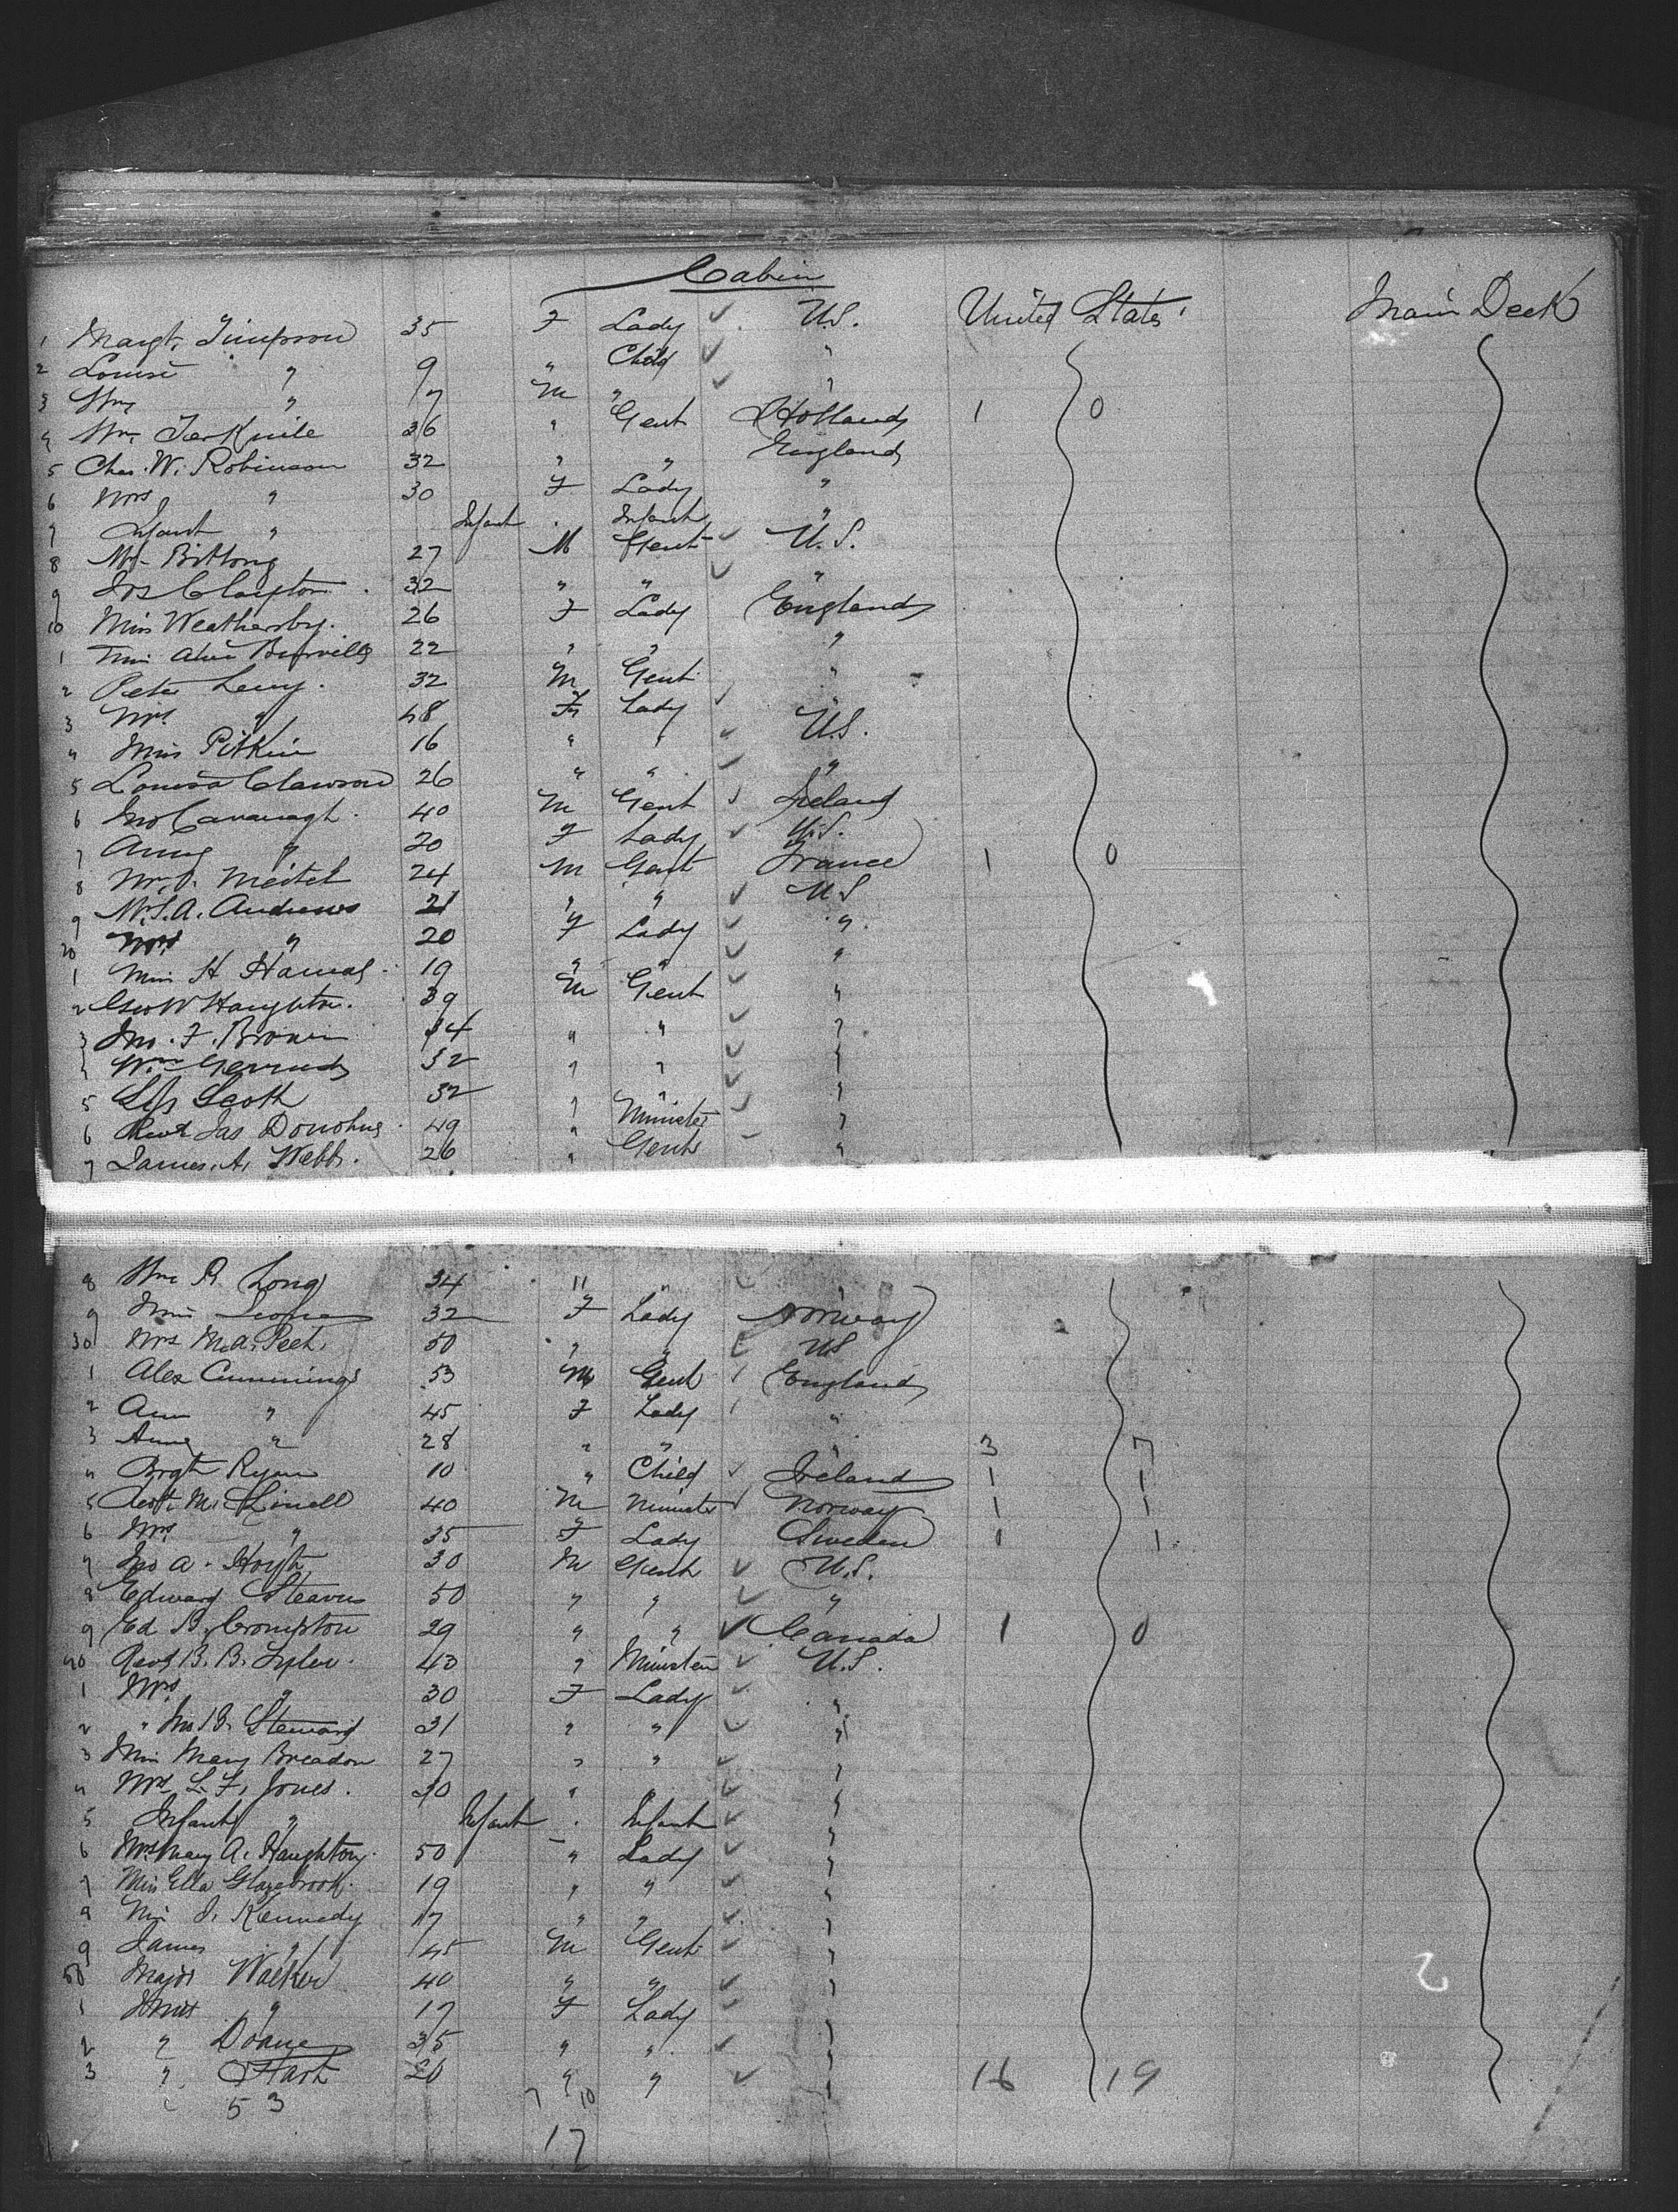 Cabin
1 Margt. Timpson 35 F Lady ✓ U.S. United States Main Deck
2 Louise " 9 " Child ✓ "
3 Wm " 7 M " ✓ "
4 Wm. 36 " Gent Holland 1 0
5 Chas. W. Robinson 32 " " England
6 Mrs " 30 F Lady "
7 Infant " Infant . Infant "
8 Mr. Bittong 27 M Gent ✓ U.S.
9 Jos Clayton 32 " " ✓ "
10 Miss Weathersby. 26 F Lady England
1 Miss Alice Burville 22 " " "
2 Peter Levy. 32 M Gent "
3 Mrs. " 48 F Lady ✓ "
4 Miss Pitkin 16 " " ✓ U.S.
5 Louisa Clawson 26 " " ✓ "
6 Jno Cavanagh. 40 M Gent ✓ Ireland
7 Anne " 20 F Lady ✓ U.S.
8 Mr. J. Meitel 24 M Gent France 1 0
9 Mr. S. A. Andrews 21 " " ✓ U.S
20 Mrs " 20 F Lady ✓ ".
1 Miss H 19 " " ✓ "
2 Geo W Haughton. 39 M Gent ✓ "
3 Jno. F. Brown 34 " " ✓ "
4 Wm 32 " " ✓ "
5 Scott 32 " " ✓ "
6 Revd Jas Donohue 49 " Minister ✓ "
7 James. A. Webb. 26 " Gent "
8 Wm R. Long 34 " " ✓ "
9 Miss 32 F Lady Norway
30 Mrs M. A. Peet. 50 " " ✓ US
1 Alex Cummings 53 M Gent ✓ England
2 Ann " 45 F Lady "
3 Anne " 28 " " " 3 7
4 Brgt Ryan 10 " Child ✓ Ireland 1 1
5 Revt. M. Linell 40 M Minister ✓ Norway 1 1
6 Mrs " 35 F Lady Sweden 0 1
7 Jno A. Hoyt 30 M Gent ✓ U.S.
8 Edward Steavens 50 " " ✓ "
9 Ed. B. Crompton 29 " " ✓ Canada 1 0
40 Revd B. B. Tyler. 40 " Minister ✓ U.S.
1 Mrs. " 30 F Lady ✓ "
2 " Jno. B. Steward 31 " " ✓ "
3 Miss Mary Breadon 27 " " ✓ "
4 Mrs L. F. Jones. 30 " " ✓ "
5 Infant " Infant . Infant ✓ "
6 Mrs Mary A. Haughton. 50 " Lady ✓ "
7 Miss Ella Glazebrook. 19 " " ✓ "
8 Miss J. Kennedy 17 " " ✓ "
9 James " 45 M Gent ✓ "
50 Major Walker 40 " " ✓ "
1 Miss " 17 F Lady ✓ "
2 " Doane 35 " " ✓ "
3 " Hart 20 " " ✓ " 16 19
53 7 10
17